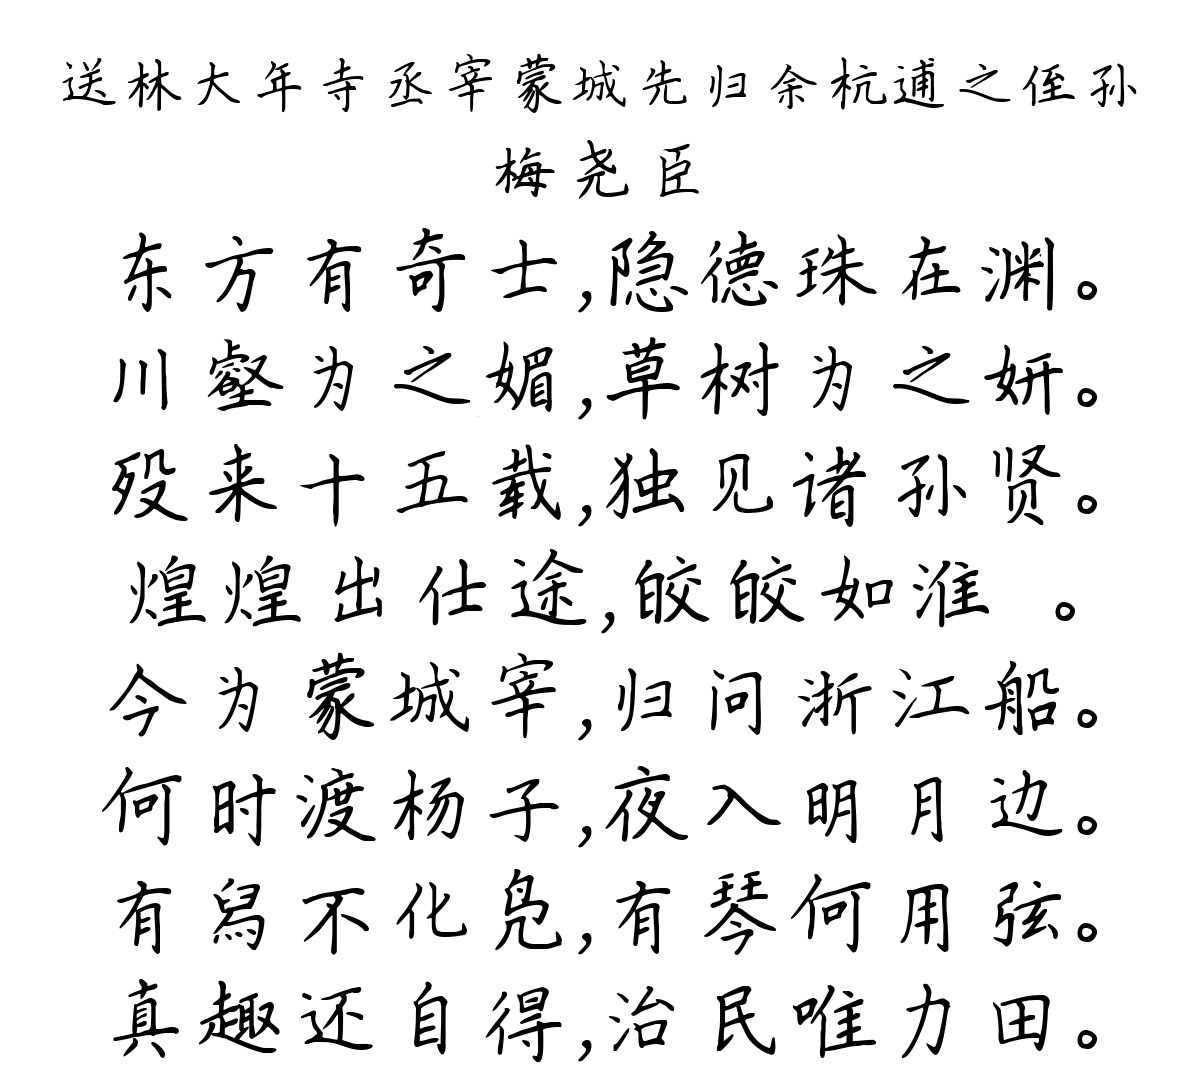 送林大年寺丞宰蒙城先归余杭逋之侄孙
梅尧臣
东方有奇士,隐德珠在渊。
川壑为之媚,草树为之妍。
殁来十五载,独见诸孙贤。
煌煌出仕途,皎皎如淮 。
今为蒙城宰,归问浙江船。
何时渡杨子,夜入明月边。
有舄不化凫,有琴何用弦。
真趣还自得,治民唯力田。